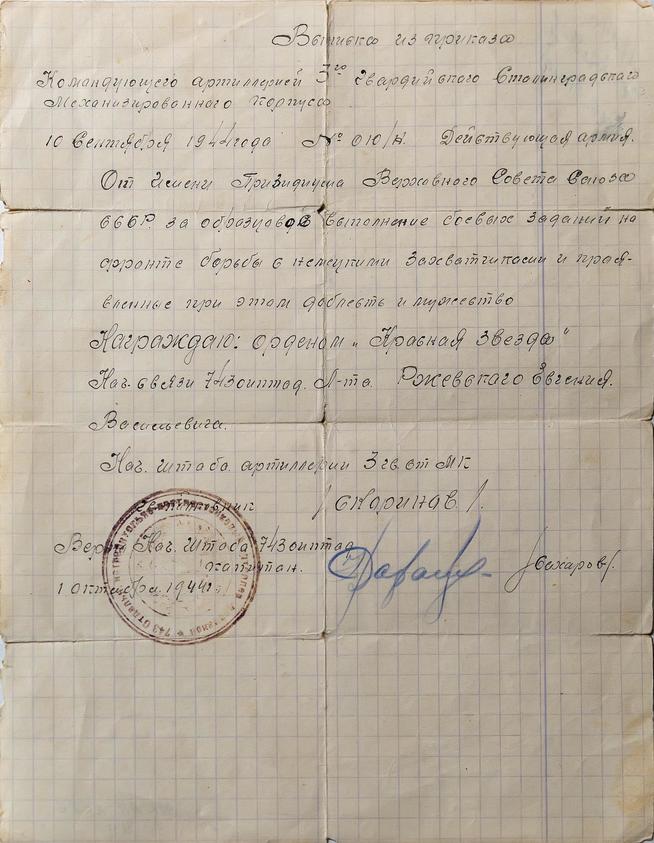 Выписка из приказа
Командующего артиллерией 3го Гвардийского Сталинградского
Механизированного Корпуса
10 Сентября 1944 года № 010/Н Действующая армия.
От Имени Призидиума Верхавного Совета Союза
СССР. за образцовое выполнение боевых заданий на
фронте борьбы с немецкими захватчиками и прояв-
вленные при этом доблесть и мужество
Награждаю: орденом „Красная Звезда"
Нач. связи 743 оиптад. Л-та Ржевского Евгения.
Васильевича.
Нач. штаба артиллерии 3 гв. ст МК
/ Скаринав /.
Верно Нач. Штаба 743 оиптад
капитан. /Сахаров/.
1 октября 1944 г.
743 Отдельный истребительно-противотанковый